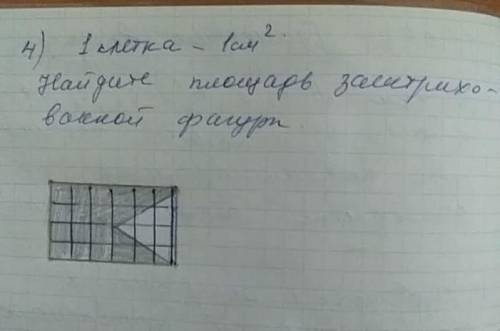 4) 1 клетка - 1 см².
Найдите площадь заштрихо-
ванной фигуры